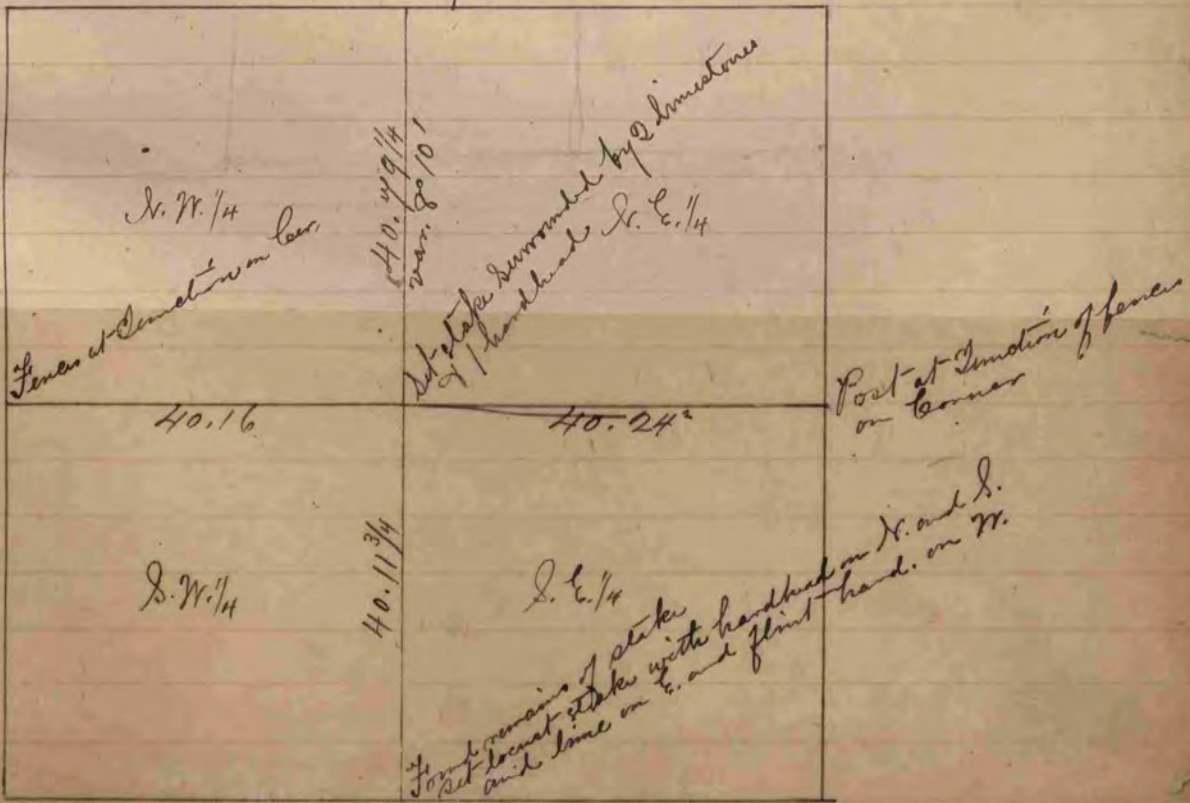 N. W. 1/4
Fences at Junction on Cor.
40.49 1/4
var. 8° 10'
Set stake surrounded by 2 limestones
& 1 hardhead
N. E. 1/4
Post at Junction of fences
on Corner
40.16
40.24
S. W. 1/4
40.11 3/4
S. E. 1/4
Found remains of stake
set locust stake with hardhead on N. and S.
and lime on E. and flint hard. on W.